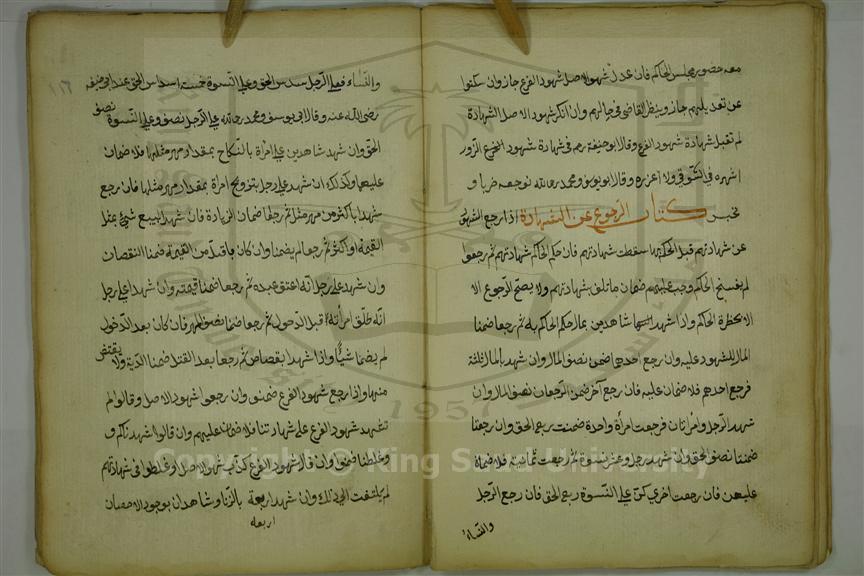 معه حضور مجلس الحاكم فان عدل شهود الاصل شهود الفرع جاز وان سكتوا
عن تعديلهم جاز وينظر القاضي في حالهم وان انكر شهود الاصل الشهادة
لم تقبل شهادة شهود الفرع وقال ابو حنيفة رحم في شهادة شهود الزور
اشهره في السوق ولا اعزره وقال ابو يوسف ومحمد رحمهما الله نوجعه ضربا و
نحبس كتاب الرجوع عن الشهادة اذا رجع الشهود
عن شهادتهم قبل الحكم بها سقطت شهادتهم فان حكم الحاكم شهادتهم ثم رجعوا
لم يفسخ الحكم وجب عليهم ضمان ما تلف شهادتهم ولا يصح الرجوع الا
بحضرة الحاكم واذا شهد شاهدين بمال حكم الحاكم به ثم رجعا ضمنا
المال للشهود عليه وان رجع احدهما ضمن نصف المال وان شهد بالمال ثلثة
فرجع احدهم فلا ضمان عليه فان رجع آخر ضمن الرجعان نصف المال وان
شهد الرجل وامرأتان فرجعت امرأة واحدة ضمنت ربع الحق وان رجعتا
ضمنتا نصف الحق وان شهد رجل وعشر نسوة ثم رجعت ثمانية فلا ضمان
عليهن فان رجعت اخرى كن على النسوة ربع الحق فان رجع الرجل
والنساء
١١٦
والنساء فعلى الرجل سدس الحق وعلى النسوة خمسة اسداس الحق عند ابي حنيفة
رضى الله عنه وقال ابى يوسف ومحمد رحمهما الله على الرجل نصف وعلى النسوة نصف
الحق وان شهد شاهدين على امرأة بالنكاح بمقدار مهر مثلها فلا ضمان
عليهما وكذلك ان شهد على رجل بتزويج امرأة بمقدار مهر مثلها فان رجع
شهدا باكثر من مهر مثل ثم رجعا ضمان الزيادة فان شهد البيع شيئ بمثل
القيمة او اكثر ثم رجعا لم يضمنا وان كان باقل من القيمة ضمنا النقصان
وان شهد على رجل انه اعتق عبده ثم رجعا ضمنا قيمته وان شهدا على رجل
انه طلق امرأته قبل الدخول ثم رجعا ضمنا نصف المهر فان كان بعد الدخول
لم يضمنا شيئا واذا شهدا بقصاص ثم رجعا بعد القتل ضمنا الدية ولا يقتص
منهما واذا رجع شهود الفرع ضمنوا وان رجعوا شهود الاصل وقالوا لم
تشهد شهود الفرع على شهادتنا فلا ضمان عليهم وان قالوا شهدناكم و
وغلطنا ضمنوا وان قال شهود الفرع كذب شهود الاصل او غلطوا في شهادتهم
لم يلتفت الى ذلك وان شهد اربعة بالزنا وشاهدان بوجود الاحصان
اربعه
1957
Copyright © King Saud University